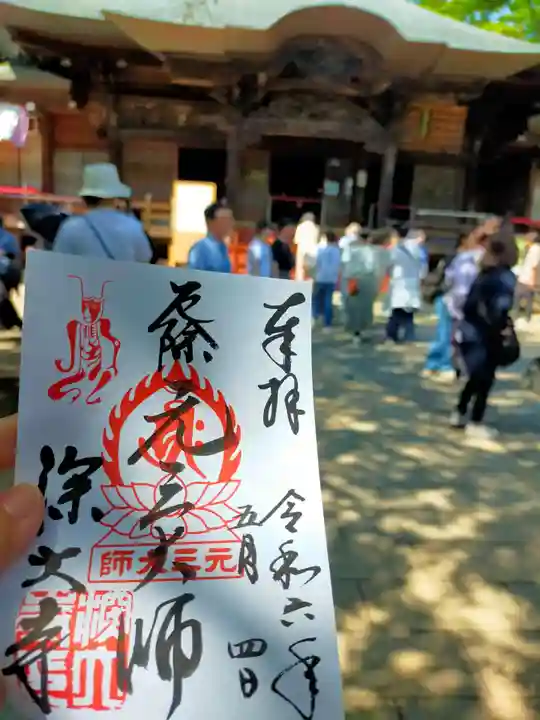 奉拝
令和六年
五月
四日
元三大師
深大寺
元三大師